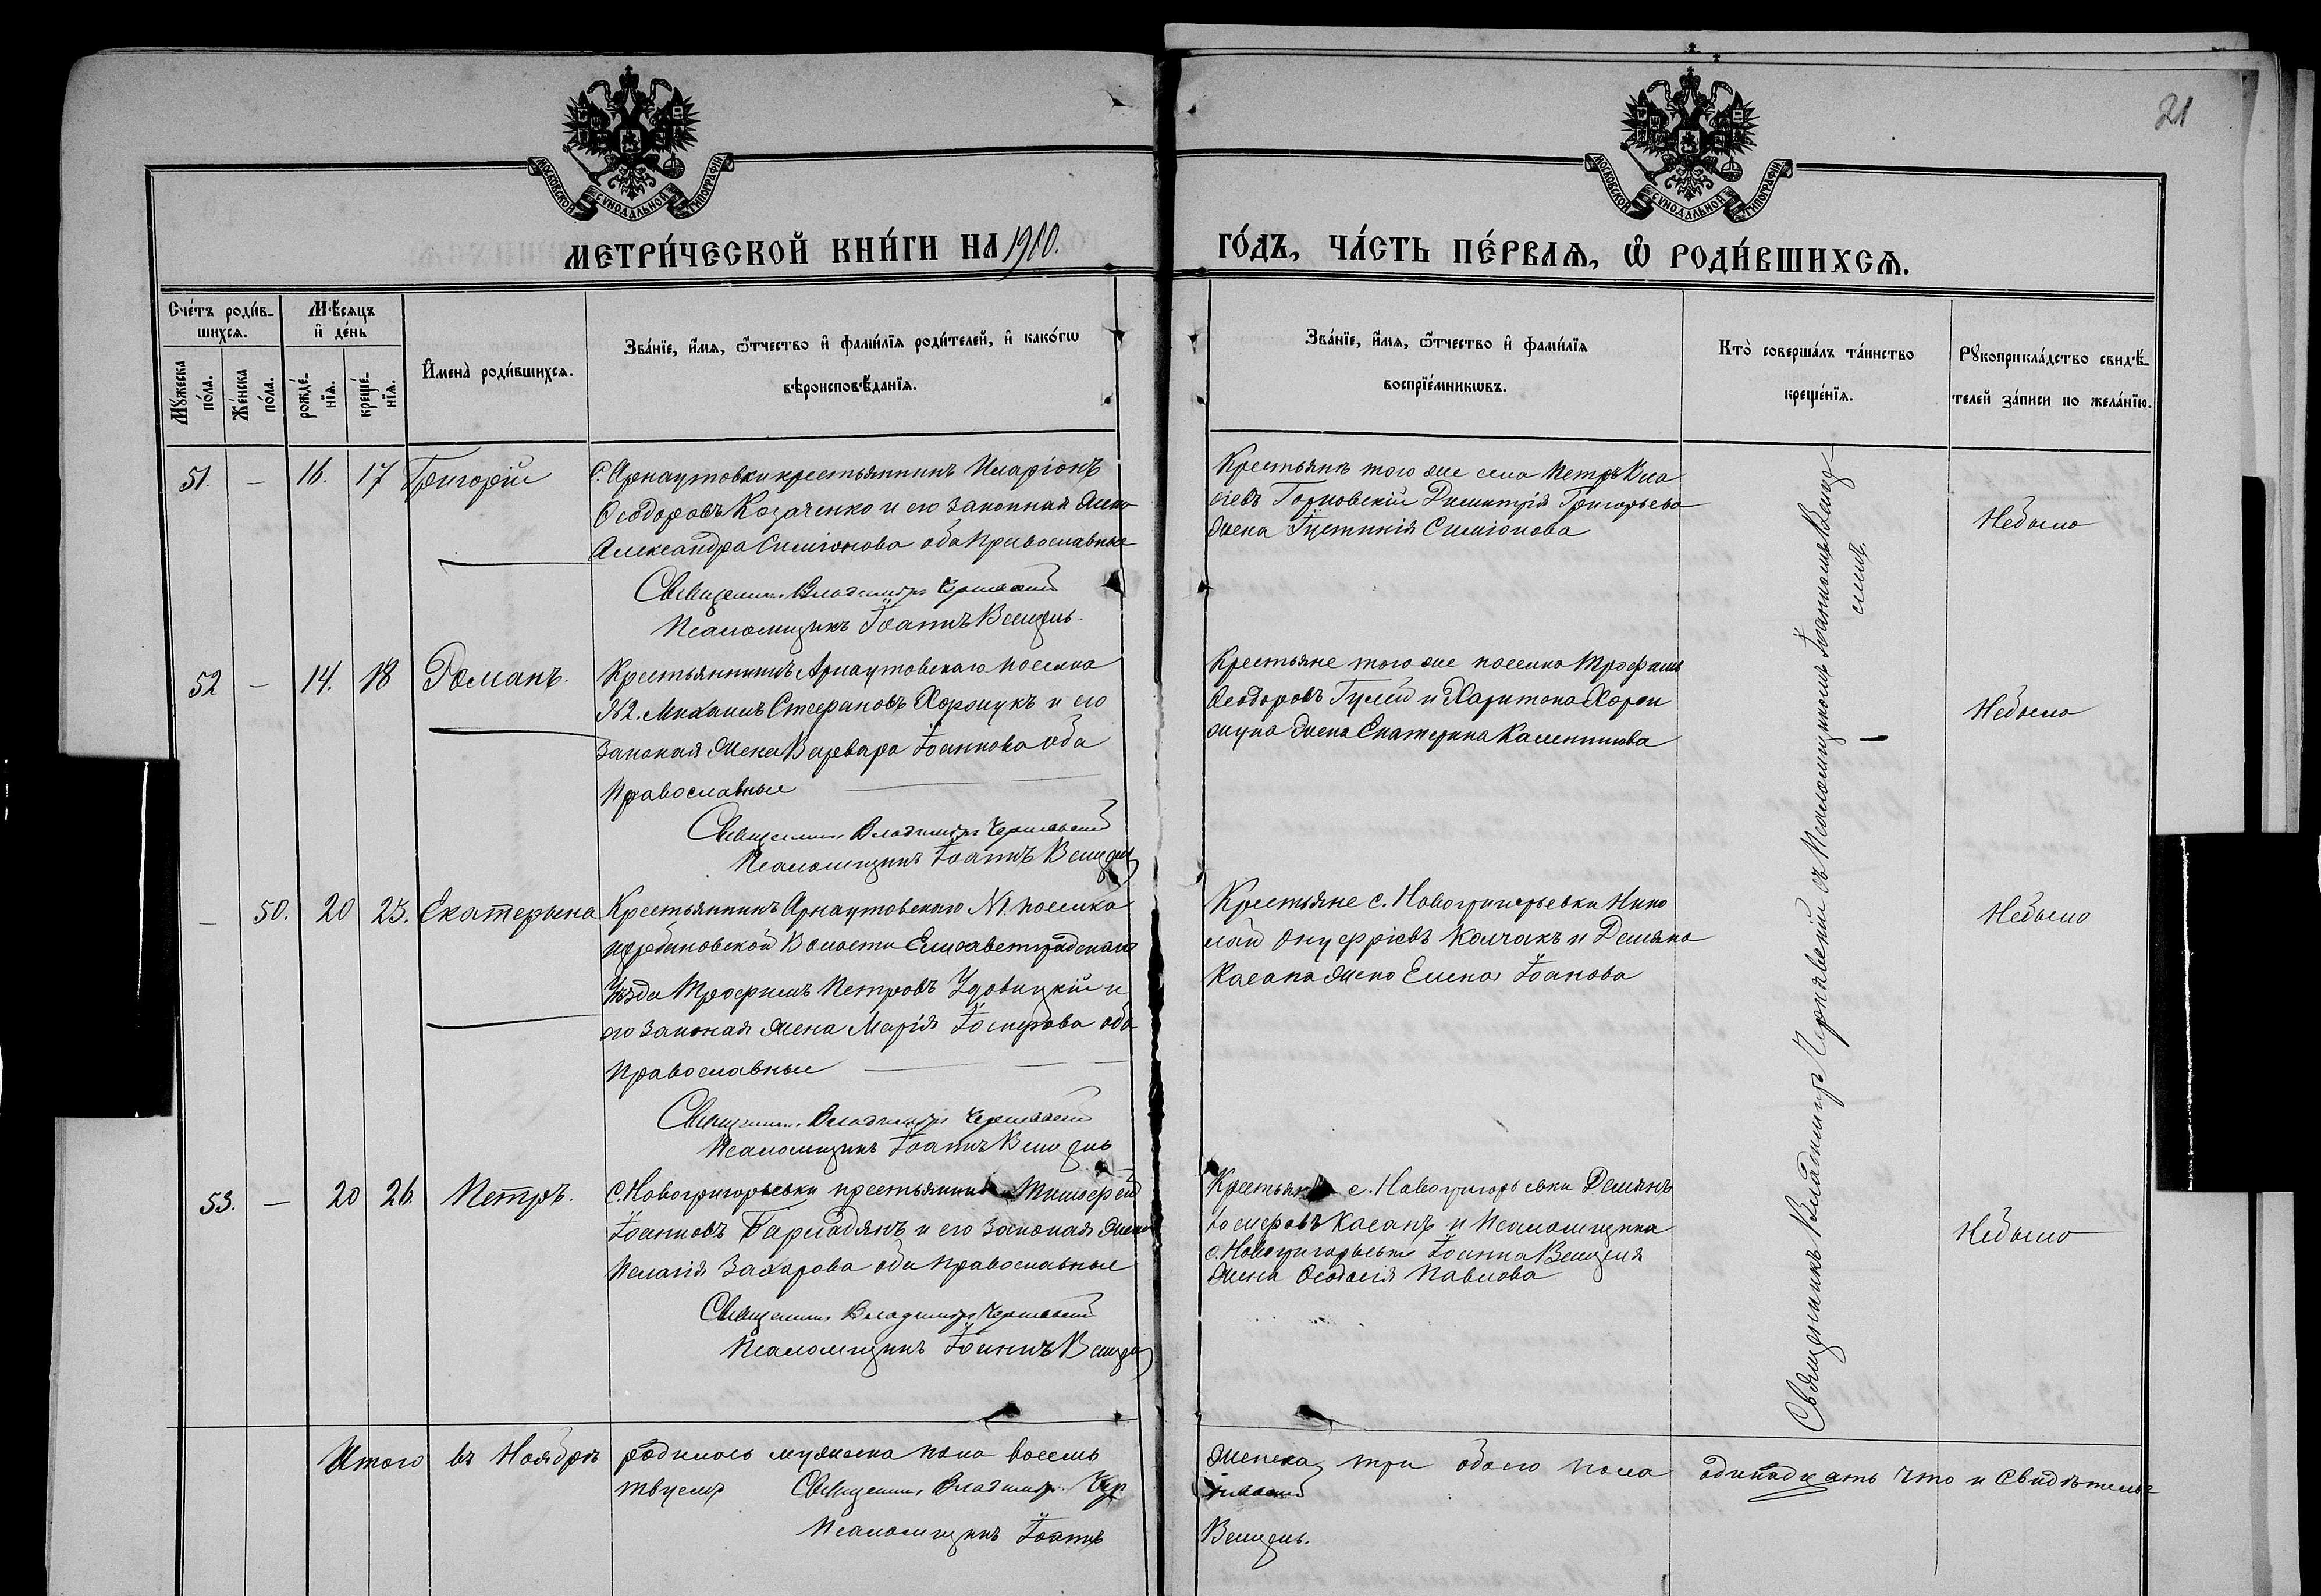 21
МОСКОВСКОЙ СѴНОДАЛЬНОЙ ТИПОГРАФІИ.
МОСКОВСКОЙ СѴНОДАЛЬНОЙ ТИПОГРАФІИ.
МЕТРИ́ЧЕСКОЙ КНИ́ГИ НА 1910.
ГО́ДЪ, ЧА́СТЬ ПЕ́РВАѦ, Ѽ РОДИ́ВШИХСѦ.
Сче́тъ роди́в-
шихсѧ.
Мѣ́сяцъ
и҆ де́нь
Мꙋ́жеска
по́ла.
Же́нска
по́ла.
рожде́-
нїѧ.
креще́-
нїѧ.
И҆мена̀ роди́вшихсѧ.
Зва́нїе, и҆́мѧ, ѻ҆́тчество и҆ фами́лїѧ роди́телей, и҆ како́гѡ
вѣроисповѣ́данїѧ.
Зва́нїе, и҆́мѧ, ѻ҆́тчество и҆ фами́лїѧ
воспрїе́мникѡвъ.
Кто̀ соверша́лъ та́инство
креще́нїѧ.
Рꙋкоприкла́дство свидѣ́-
телей за́писи по жела́нїю.
51. — 16. 17 Григорій
С. Арнаутовки крестьянинъ Иларіонъ
Ѳеодоровъ Козаченко и его законная жена
Александра Симіонова оба православные
Священникъ Владиміръ Чернявскій
Псаломщикъ Іоаннъ Венцель
Крестьяне того же села Петръ Вла
сіевъ Горновскій Димитрія Григорьева
жена Іустинія Симіонова
Небыло
52 — 14. 18 Романъ.
Крестьянинъ Арнаутовскаго поселка
№2. Михаилъ Стефановъ Хорошукъ и его
законая жена Варвара Іоаннова оба
Православные
Священникъ Владиміръ Чернявскій
Псаломщикъ Іоаннъ Венцель
Крестьяне того же поселка Трофимъ
Ѳеодоровъ Гулей и Харитона Хоро
шука жена Екатерина Калинникова
Небыло
— 50. 20 23. Екатерына
Крестьянинъ Арнаутовскаго №1 поселка
Щербановской Волости Елисаветградскаго
Уѣзда Трофимъ Петровъ Удовицкій и
его законая жена Марія Іосифова оба
Православные
Священникъ Владиміръ Чернявскій
Псаломщикъ Іоаннъ Венцель
Крестьяне с. Новогригорьевки Нико
лай Онуфріевъ Колчакъ и Демьяна
Касапа жена Елена Іоанова
Небыло
53. — 20 26. Петръ.
С. Новогригорьевки крестьянинъ Тимофей
Іоанновъ и его законая жена
Пелагія Захарова оба православные
Священникъ Владиміръ Чернявскій
Псаломщикъ Іоаннъ Венцель
Крестьяне с. Новогригорьевки Демьянъ
Іосифовъ Касапъ и Псаломщика
с. Новогригорьевки Іоанна Венцеля
жена Ѳеодосія Павлова
Небыло
Священникъ Владиміръ Чернявскій съ Псаломщикомъ Іоанномъ Венце
лемъ.
Итого въ Ноябрѣ родилось мужеска пола восемь
женска три обоего пола одинадцать что и свидѣтельс
твуемъ Священникъ Владиміръ Чер
нявскій
Псаломщикъ Іоаннъ
Венцель.